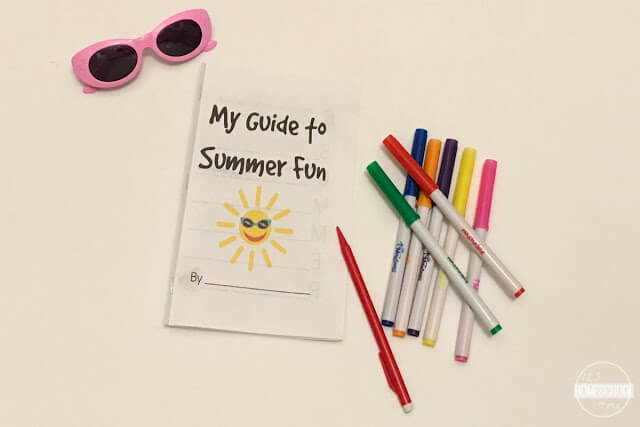 My Guide to
Summer Fun
By
HOMESCHOOL